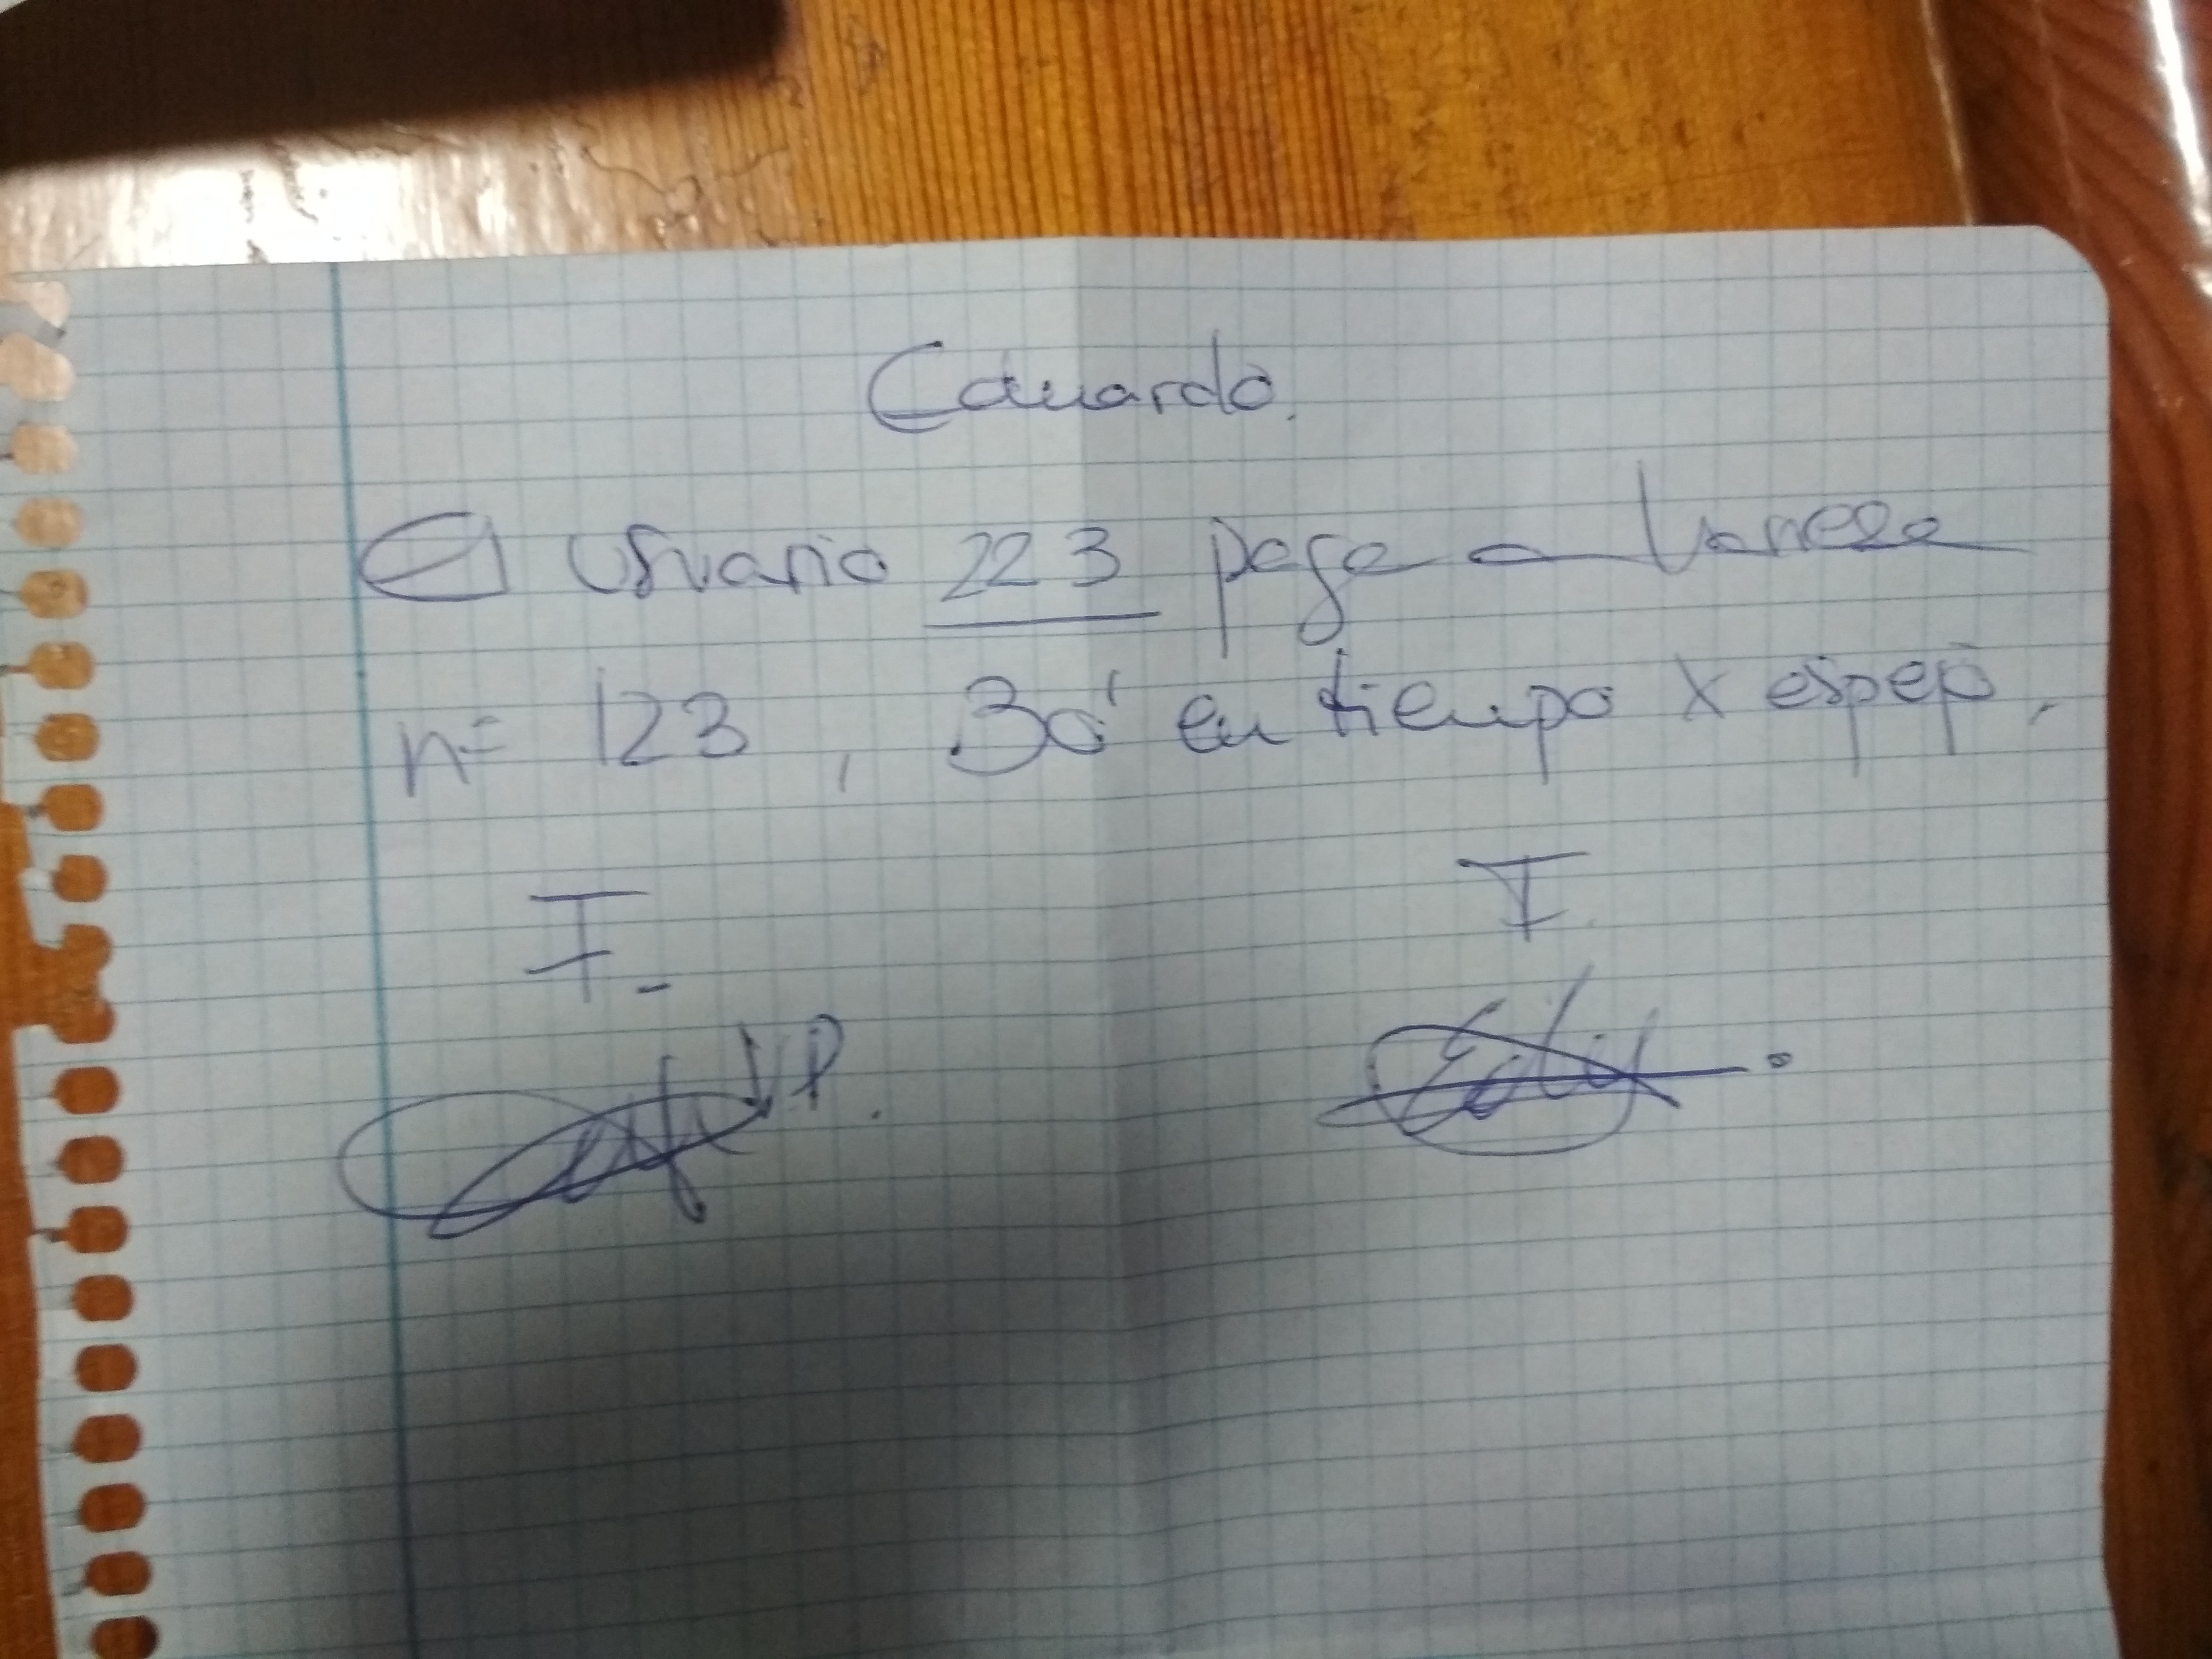 Eduardo.
El usuario 223 paga a Vanesa
nº 123, 30' en tiempo x espejo.
V.P.
Edy